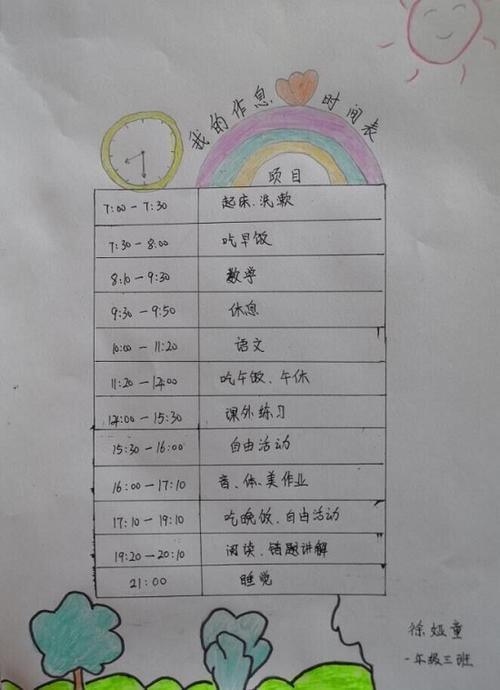 我的作息时间表
项目
7:00－7:30 起床、洗漱
7:30－8:00 吃早饭
8:10－9:30 数学
9:30－9:50 休息
10:00－11:20 语文
11:20－14:00 吃午饭、午休
14:00－15:30 课外练习
15:30－16:00 自由活动
16:00－17:10 音、体、美作业
17:10－19:10 吃晚饭、自由活动
19:20－20:10 阅读、错题讲解
21:00 睡觉
徐娅童
一年级三班